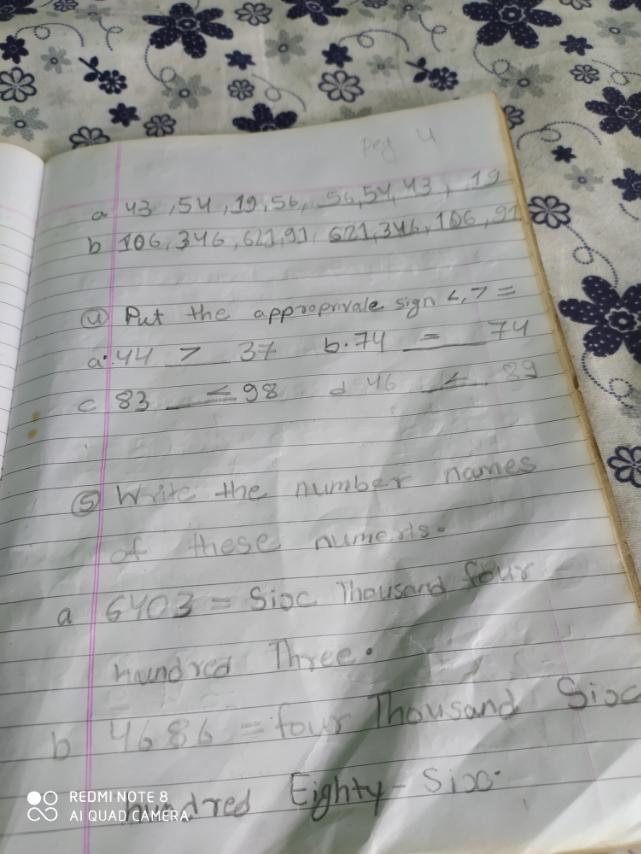 Peg 4
a 43, 54, 19, 56, 56, 54, 43, 19
b 106, 346, 621, 91, 621, 346, 106, 91
④ Put the approprivale sign <, > =
a. 44 > 37 b. 74 = 74
c 83 < 98 d 46 < 89
⑤ Write the number names
of these numerls.
a 6403 = Six Thousand four
hundred Three.
b 4686 = four Thousand Six
hundred Eighty-Six.
REDMI NOTE 8
AI QUAD CAMERA